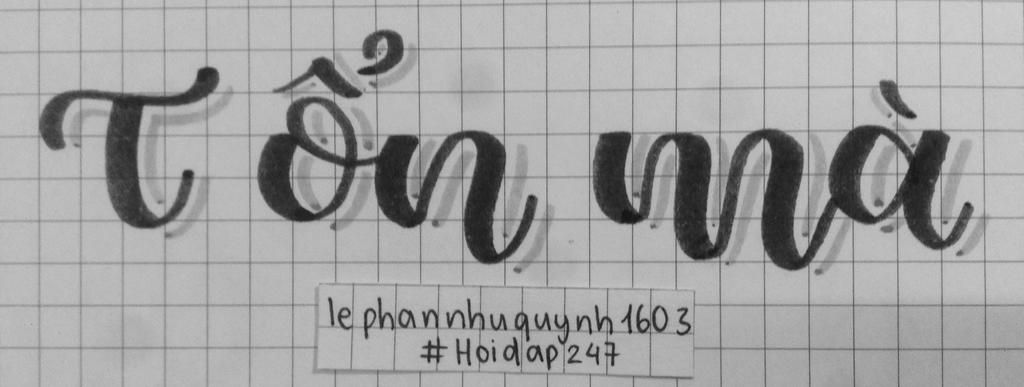 Tổn mà
lephannhuquynh1603
#Hoidap247